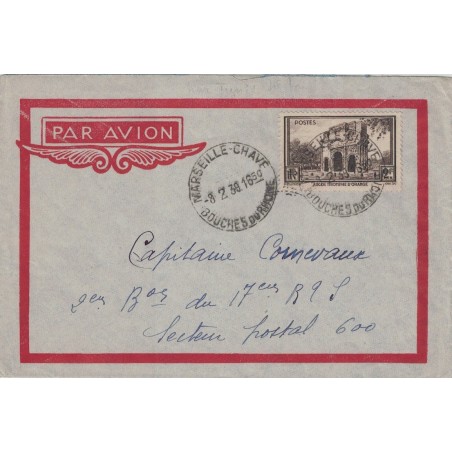 PAR AVION
POSTES
ARC DE TRIOMPHE D'ORANGE
MARSEILLE-CHAVE
-8 2 39 16 50
BOUCHES DU RHONE
BOUCHES DU RHONE
Capitaine Cornevaux
2em Bon du 17em R 9 S
Secteur postal 600